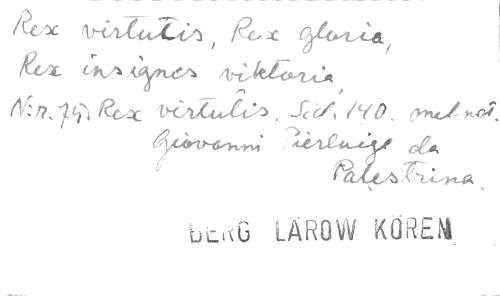 Rex virtutis, Rex gloria,
Rex insignes viktoria,
N:r. 75. Rex virtutis. Sid. 140. mel-not.
Giovanni Pierluige da
Palestrina.
BERG LAROW KÖREN